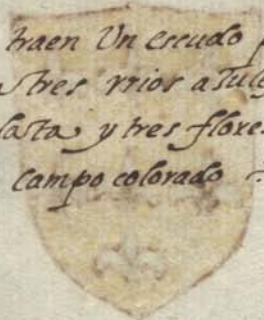 traen Un escudo
tres rrios azules
plata y tres flores
campo colorado